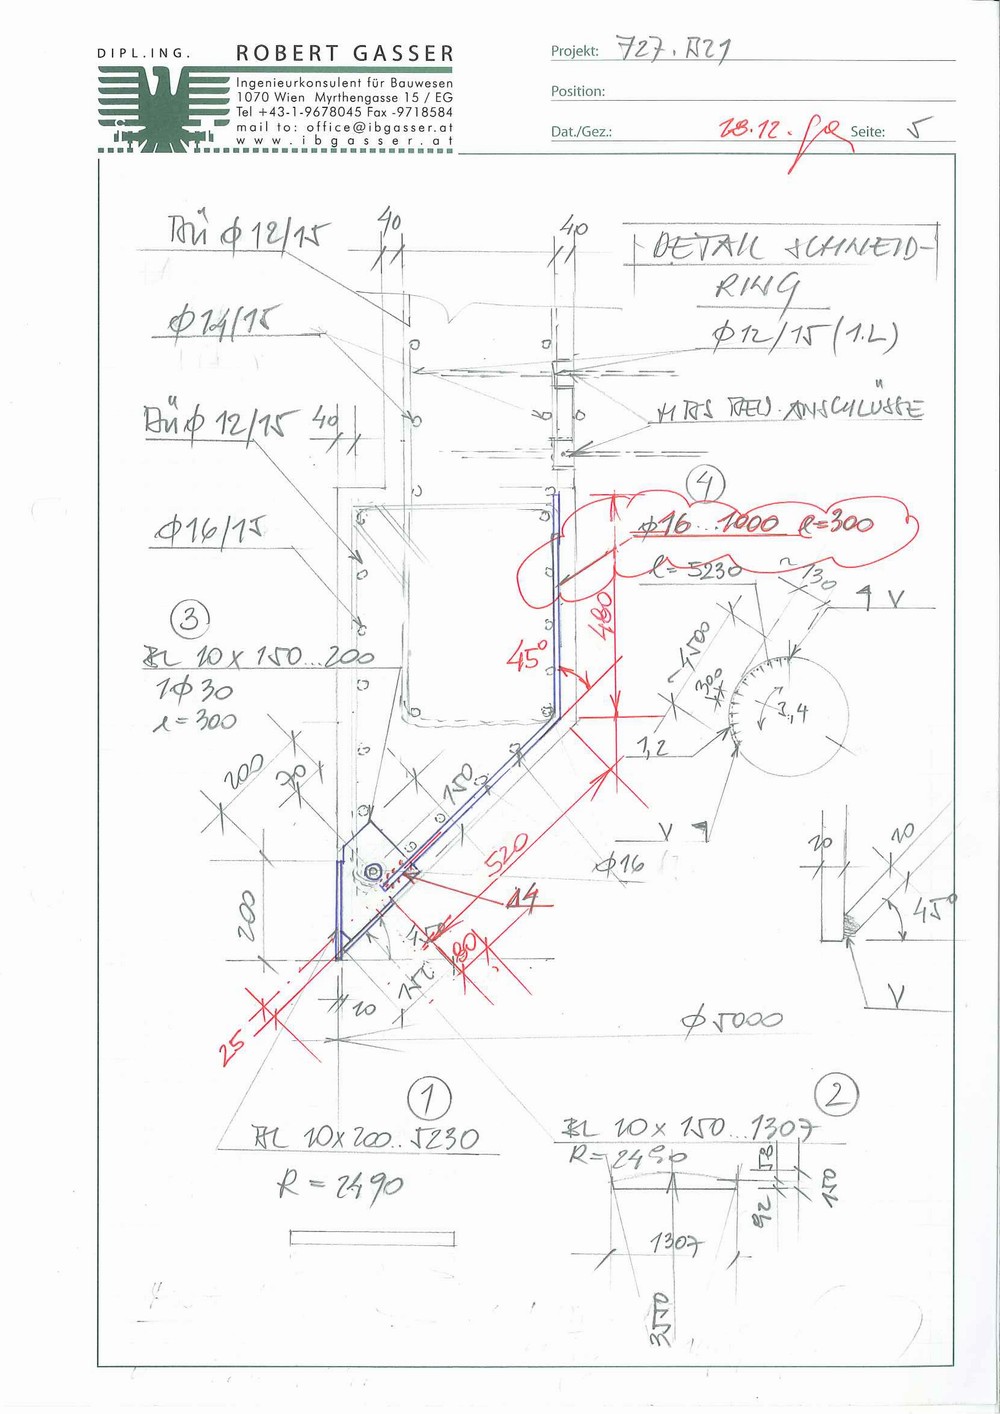 DIPL.ING. ROBERT GASSER
Ingenieurkonsulent für Bauwesen
1070 Wien Myrthengasse 15 / EG
Tel +43-1-9678045 Fax -9718584
mail to: office@ibgasser.at
www.ibgasser.at
Projekt: 727.B21
Position:
Dat./Gez.: 18.12.
Seite: 5
BÜ ϕ 12/15
40
40
DETAIL SCHNEID-
RING
ϕ 14/15
ϕ 12/15 (1.L)
BÜ ϕ 12/15
40
BEW. ANSCHLÜSSE
4
ϕ16...1000 l=300
ϕ 16/15
l=5230
~130
V
480
~1500
300
45°
3
BL 10 x 150...200
1ϕ30
l=300
3,4
1,2
V
200
70
150
520
ϕ16
14
10
10
45°
V
200
150
80
152
10
25
ϕ 5000
1
BL 10x200..5230
R = 2490
2
BL 10 x 150...1307
R=2490
58
92
150
1307
3550